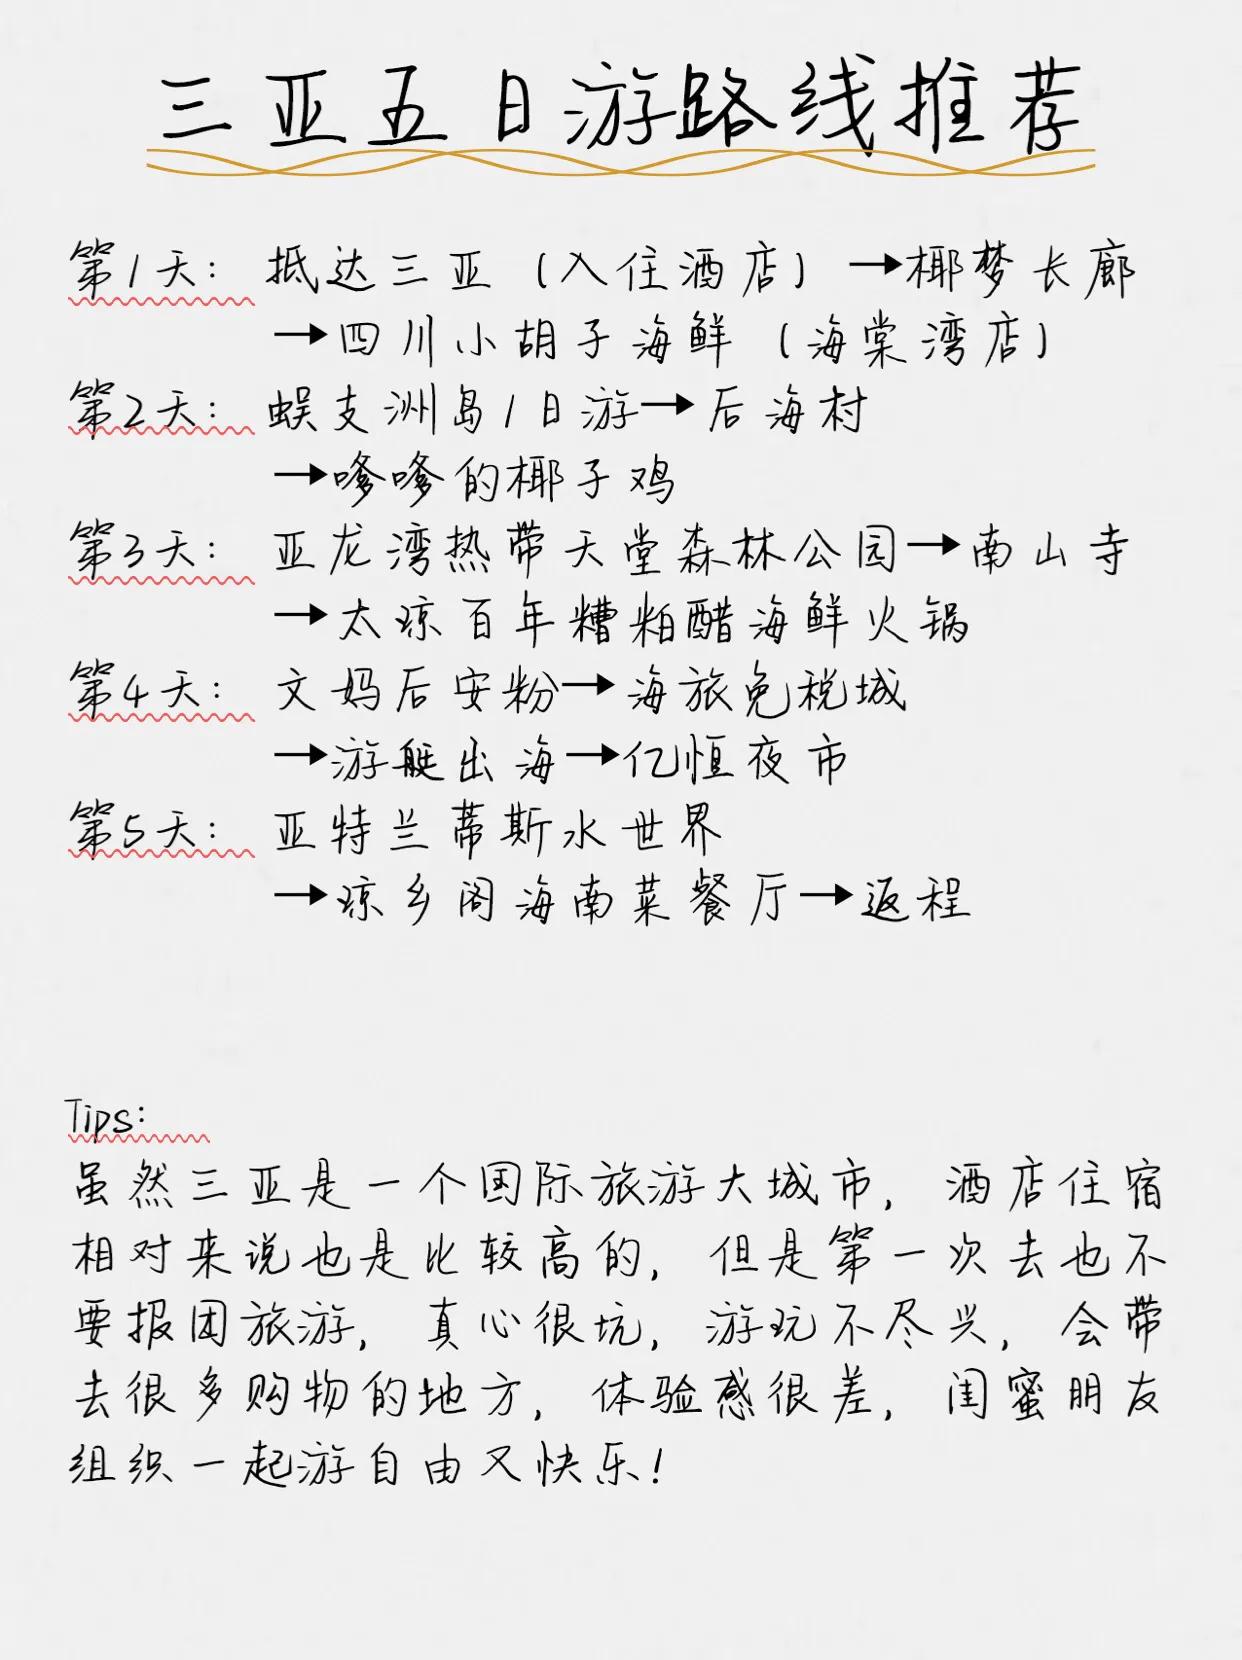 三亚五日游路线推荐
第1天：抵达三亚（入住酒店）→椰梦长廊
→四川小胡子海鲜（海棠湾店）
第2天：蜈支洲岛1日游→后海村
→嗲嗲的椰子鸡
第3天：亚龙湾热带天堂森林公园→南山寺
→太琼百年糟粕醋海鲜火锅
第4天：文妈后安粉→海旅免税城
→游艇出海→亿恒夜市
第5天：亚特兰蒂斯水世界
→琼乡阁海南菜餐厅→返程
Tips：
虽然三亚是一个国际旅游大城市，酒店住宿
相对来说也是比较高的，但是第一次去也不
要报团旅游，真心很坑，游玩不尽兴，会带
去很多购物的地方，体验感很差，闺蜜朋友
组织一起游自由又快乐！